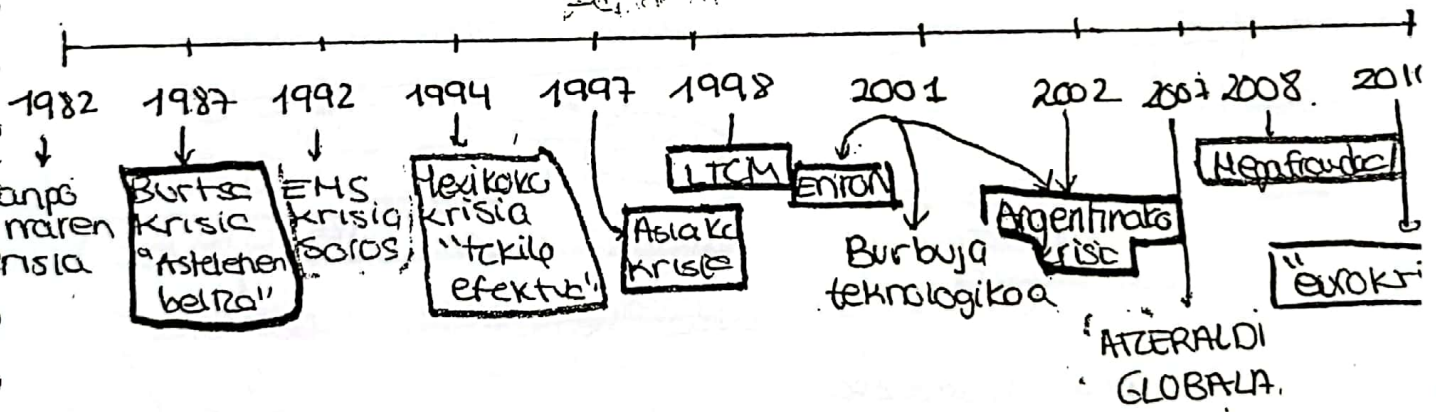 1982 1987 1992 1994 1997 1998 2001 2002 2007 2008. 2011
anpo
maren
risia
Burtsa
krisia
"Astelehen
beltza"
EMS
krisia
Soros
Mexikoko
krisia
"tekila
efektua"
Asiako
krisia
LTCM
ENRON
Burbuja
teknologikoa
Argentinako
krisia
"ATZERALDI
GLOBALA.
"eurokri